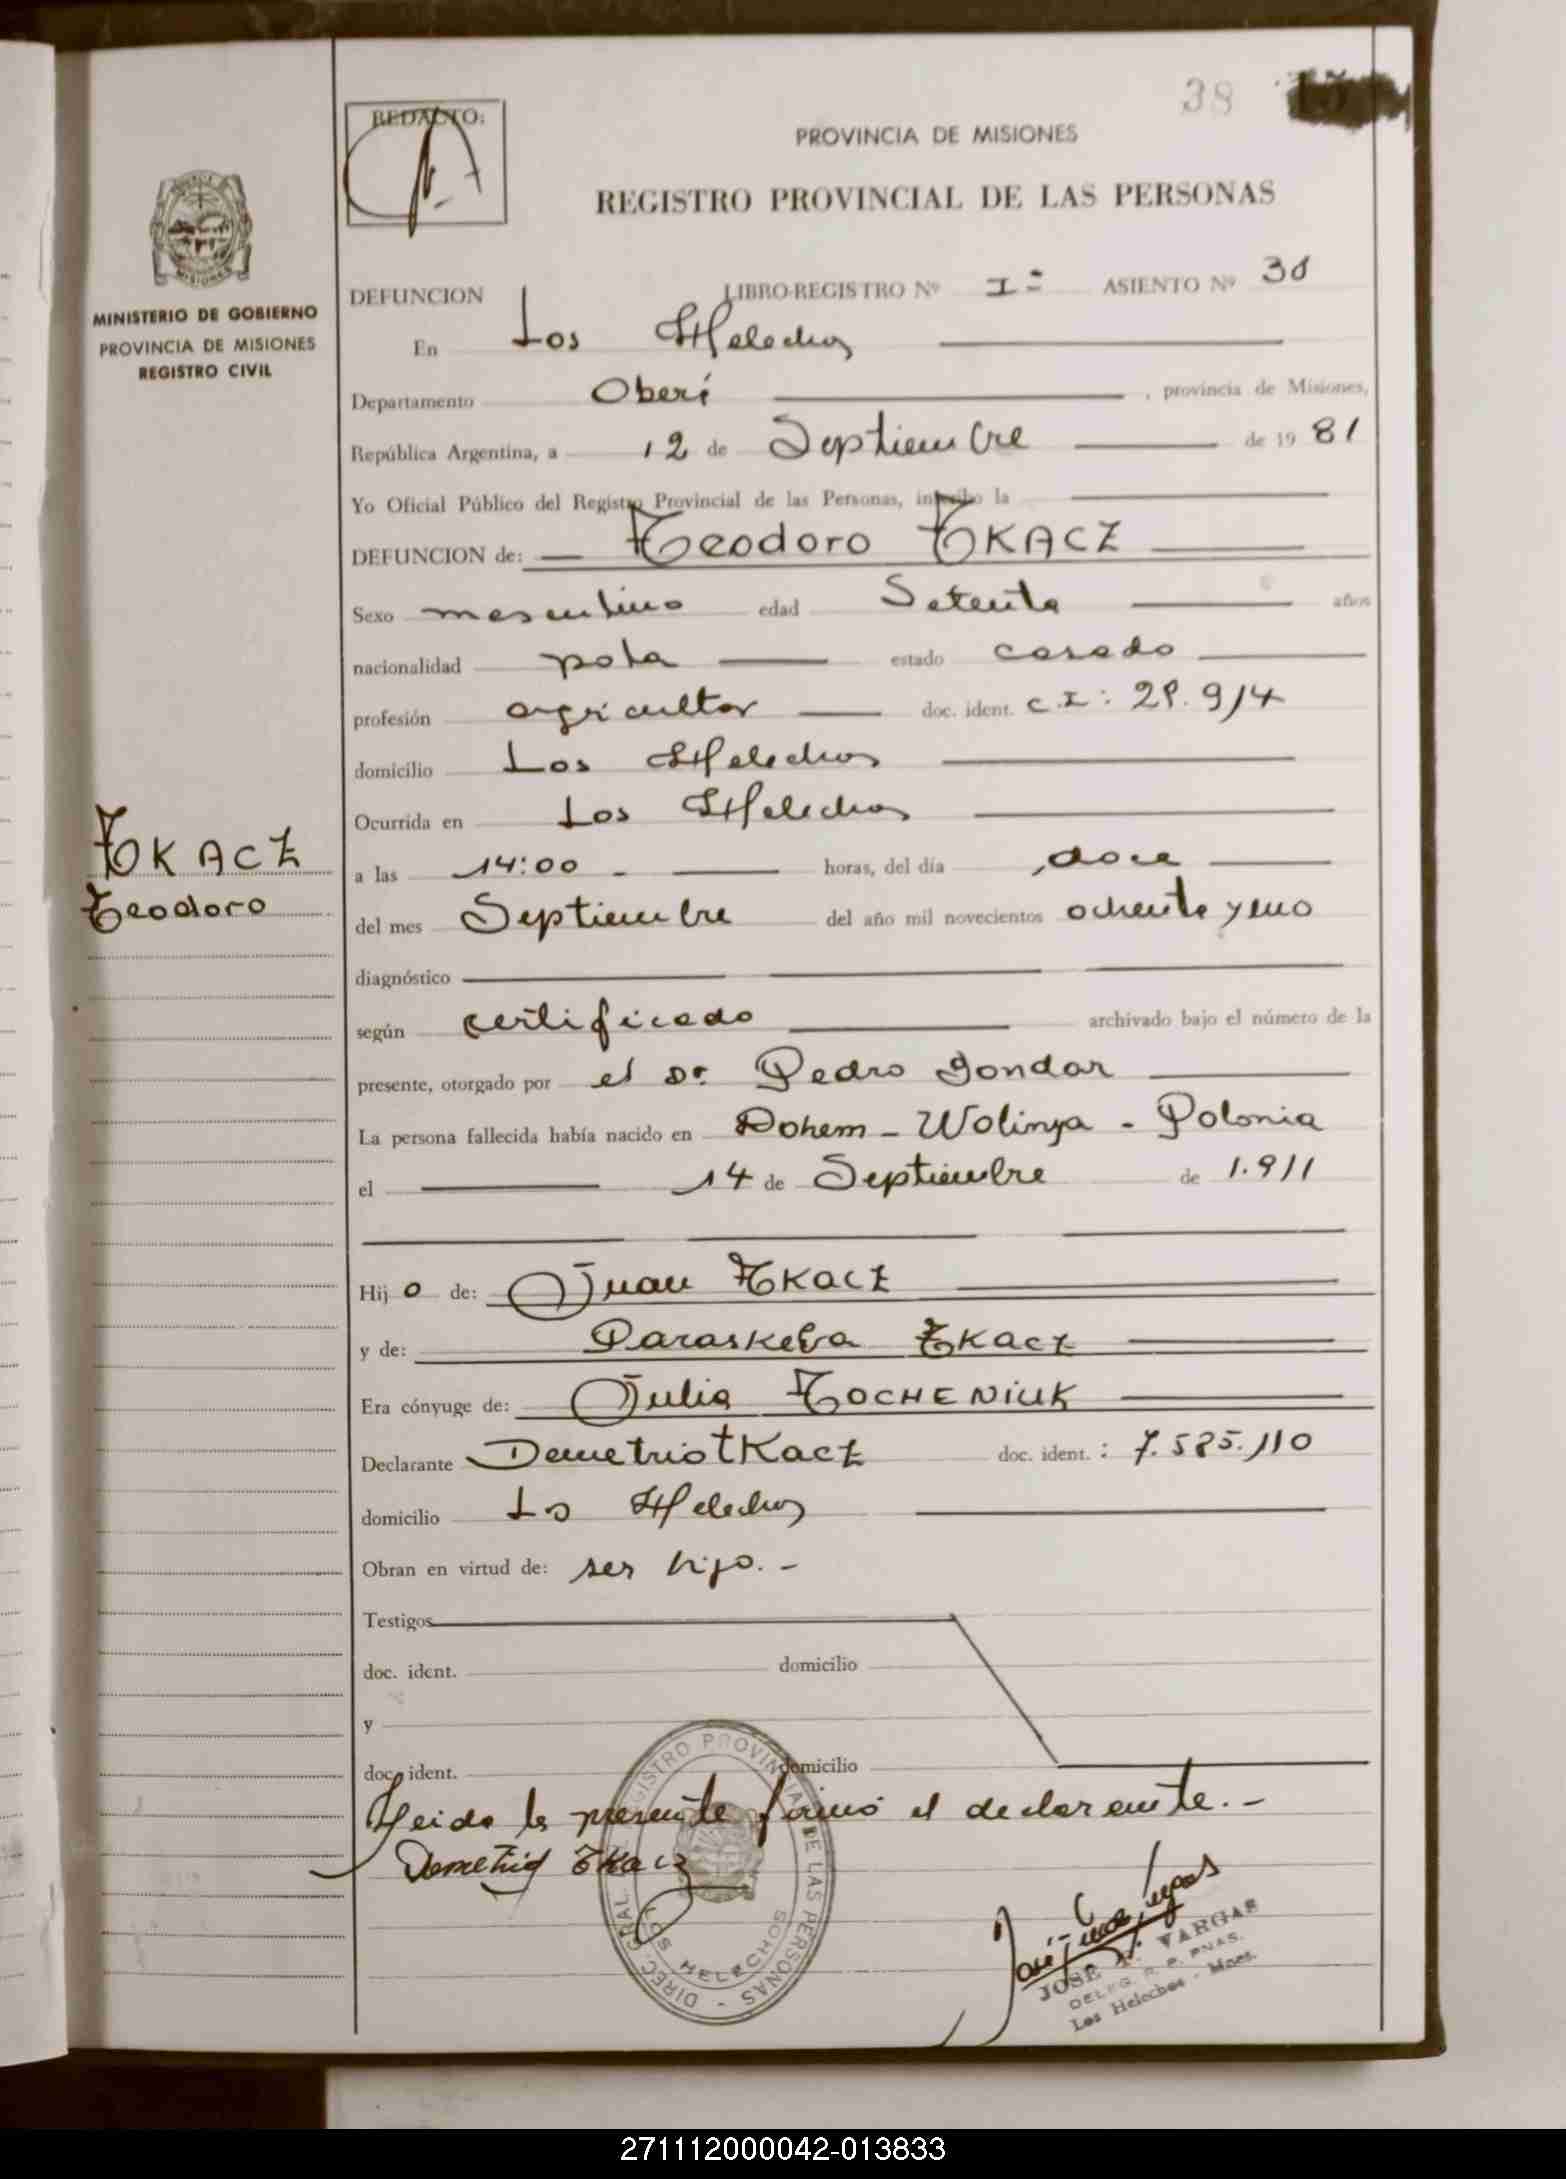 38
REDACTO:
PROVINCIA DE MISIONES
REGISTRO PROVINCIAL DE LAS PERSONAS
MISIONES
MINISTERIO DE GOBIERNO
PROVINCIA DE MISIONES
REGISTRO CIVIL
DEFUNCION LIBRO-REGISTRO Nº I= ASIENTO Nº 38
En Los Helechos
Departamento Oberá , provincia de Misiones,
República Argentina, a 12 de Septiembre de 19 81
Yo Oficial Público del Registro Provincial de las Personas, inscribo la
DEFUNCION de: Teodoro TKACZ
Sexo masculino edad Setenta años
nacionalidad pola estado casado
profesión agricultor doc. ident. C.I: 28.914
domicilio Los Helechos
Ocurrida en Los Helechos
TKACZ
Teodoro
a las 14:00 - horas, del día doce
del mes Septiembre del año mil novecientos ochenta y uno
diagnóstico
según certificado archivado bajo el número de la
presente, otorgado por el Dr. Pedro Gondar
La persona fallecida había nacido en Dohem - Wolinya - Polonia
el 14 de Septiembre de 1.911
Hij o de: Juan TKACZ
y de: Paraskeva TKACZ
Era cónyuge de: Julia TOCHENIUK
Declarante Demetrio tKacz doc. ident. : 7.585.110
domicilio Los Helechos
Obran en virtud de: ser hijo. -
Testigos
doc. ident. domicilio
y
doc. ident. domicilio
Leida la presente firmó el declarante. -
Demetrio Tkacz
DIREC. GRAL. DEL REGISTRO PROVINCIAL DE LAS PERSONAS -
LOS HELECHOS
JOSE VARGAS
DELEG. R. P. PNAS.
Los Helechos - Mnes.
271112000042-013833